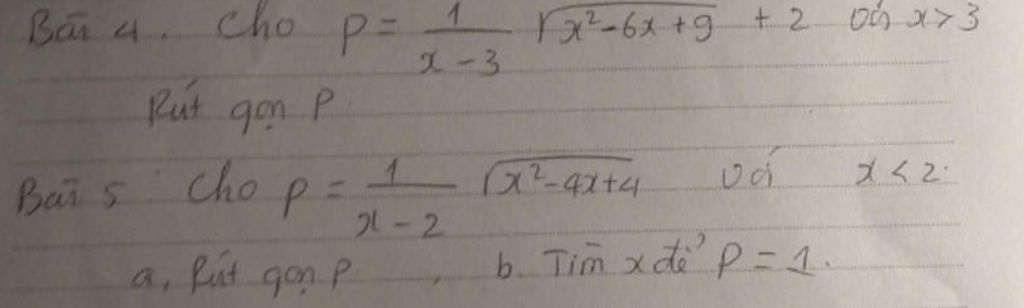 Bài 4. Cho P = 1/(x-3) √(x²-6x+9) + 2 với x>3
Rút gọn P
Bài 5: Cho P = 1/(x-2) √(x²-4x+4) với x<2.
a, Rút gọn P, b. Tìm x để P = 1.